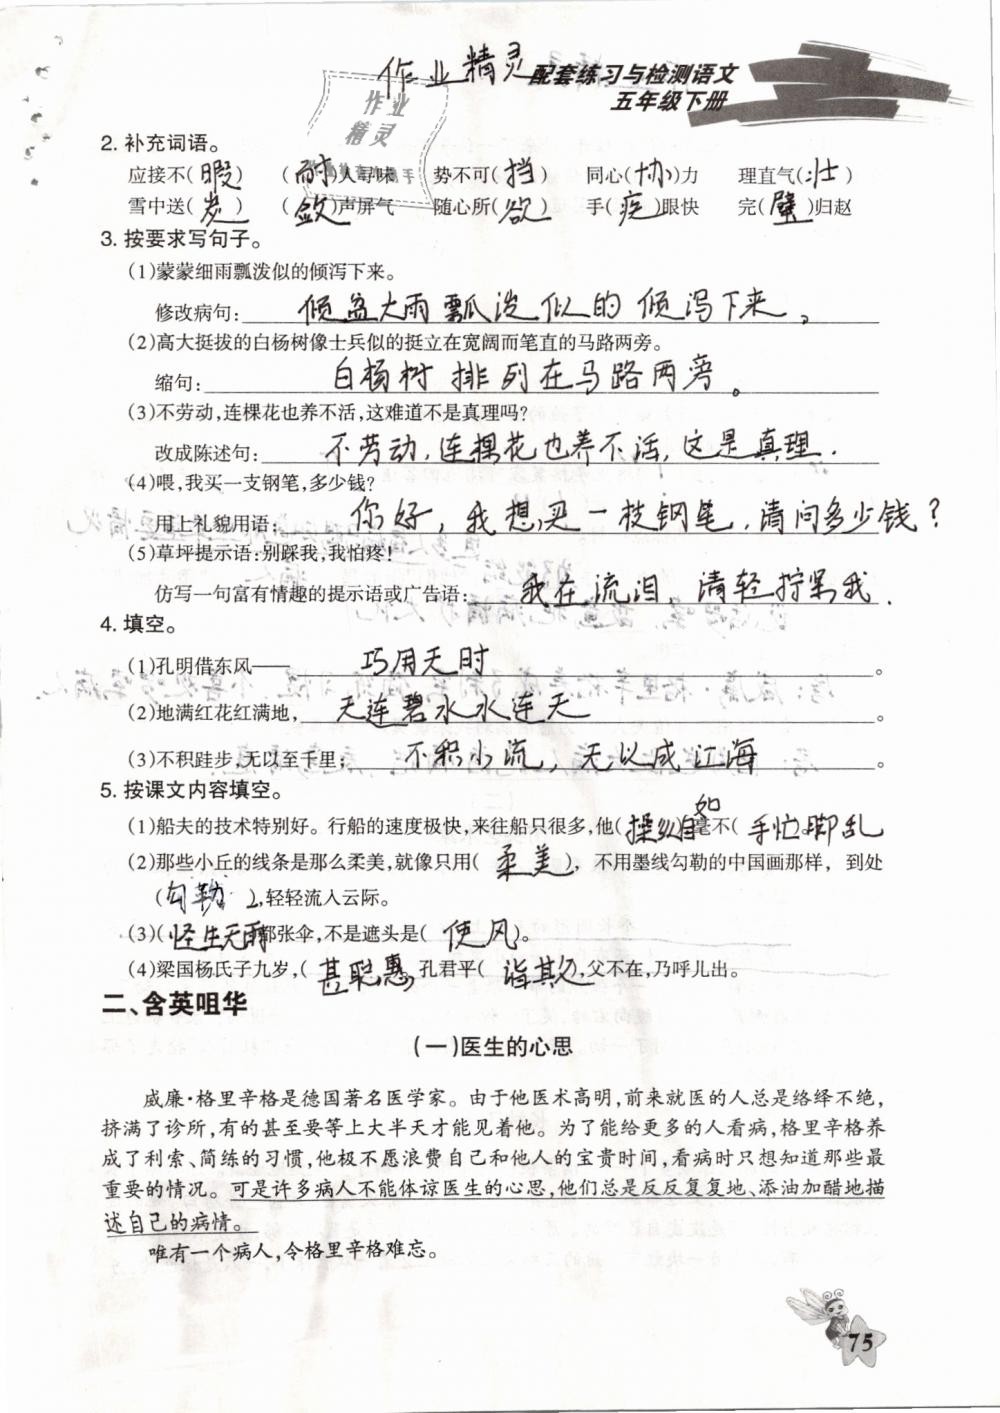 作业精灵配套练习与检测语文
五年级下册
作业
精灵
2. 补充词语。
应接不(暇) (耐)人寻味 势不可(挡) 同心(协)力 理直气(壮)
雪中送(炭) (敛)声屏气 随心所(欲) 手(疾)眼快 完(璧)归赵
3. 按要求写句子。
(1)蒙蒙细雨瓢泼似的倾泻下来。
修改病句:倾盆大雨瓢泼似的倾泻下来。
(2)高大挺拔的白杨树像士兵似的挺立在宽阔而笔直的马路两旁。
缩句:白杨树排列在马路两旁。
(3)不劳动,连棵花也养不活,这难道不是真理吗?
改成陈述句:不劳动,连棵花也养不活,这是真理.
(4)喂,我买一支钢笔,多少钱?
用上礼貌用语:你好,我想买一枝钢笔,请问多少钱?
(5)草坪提示语:别踩我,我怕疼!
仿写一句富有情趣的提示语或广告语:我在流泪,请轻拧紧我.
4. 填空。
(1)孔明借东风——巧用天时。
(2)地满红花红满地,天连碧水水连天。
(3)不积跬步,无以至千里;不积小流,无以成江海。
5. 按课文内容填空。
(1)船夫的技术特别好。行船的速度极快,来往船只很多,他(操纵自如毫不(手忙脚乱
(2)那些小丘的线条是那么柔美,就像只用(柔美),不用墨线勾勒的中国画那样,到处
(勾勒),轻轻流入云际。
(3)(怪生无雨都张伞,不是遮头是(使风)。
(4)梁国杨氏子九岁,(甚聪惠 孔君平(诣其父,父不在,乃呼儿出。
二、含英咀华
(一)医生的心思
威廉·格里辛格是德国著名医学家。由于他医术高明,前来就医的人总是络绎不绝,
挤满了诊所,有的甚至要等上大半天才能见着他。为了能给更多的人看病,格里辛格养
成了利索、简练的习惯,他极不愿浪费自己和他人的宝贵时间,看病时只想知道那些最
重要的情况。可是许多病人不能体谅医生的心思,他们总是反反复复地、添油加醋地描
述自己的病情。
唯有一个病人,令格里辛格难忘。
75